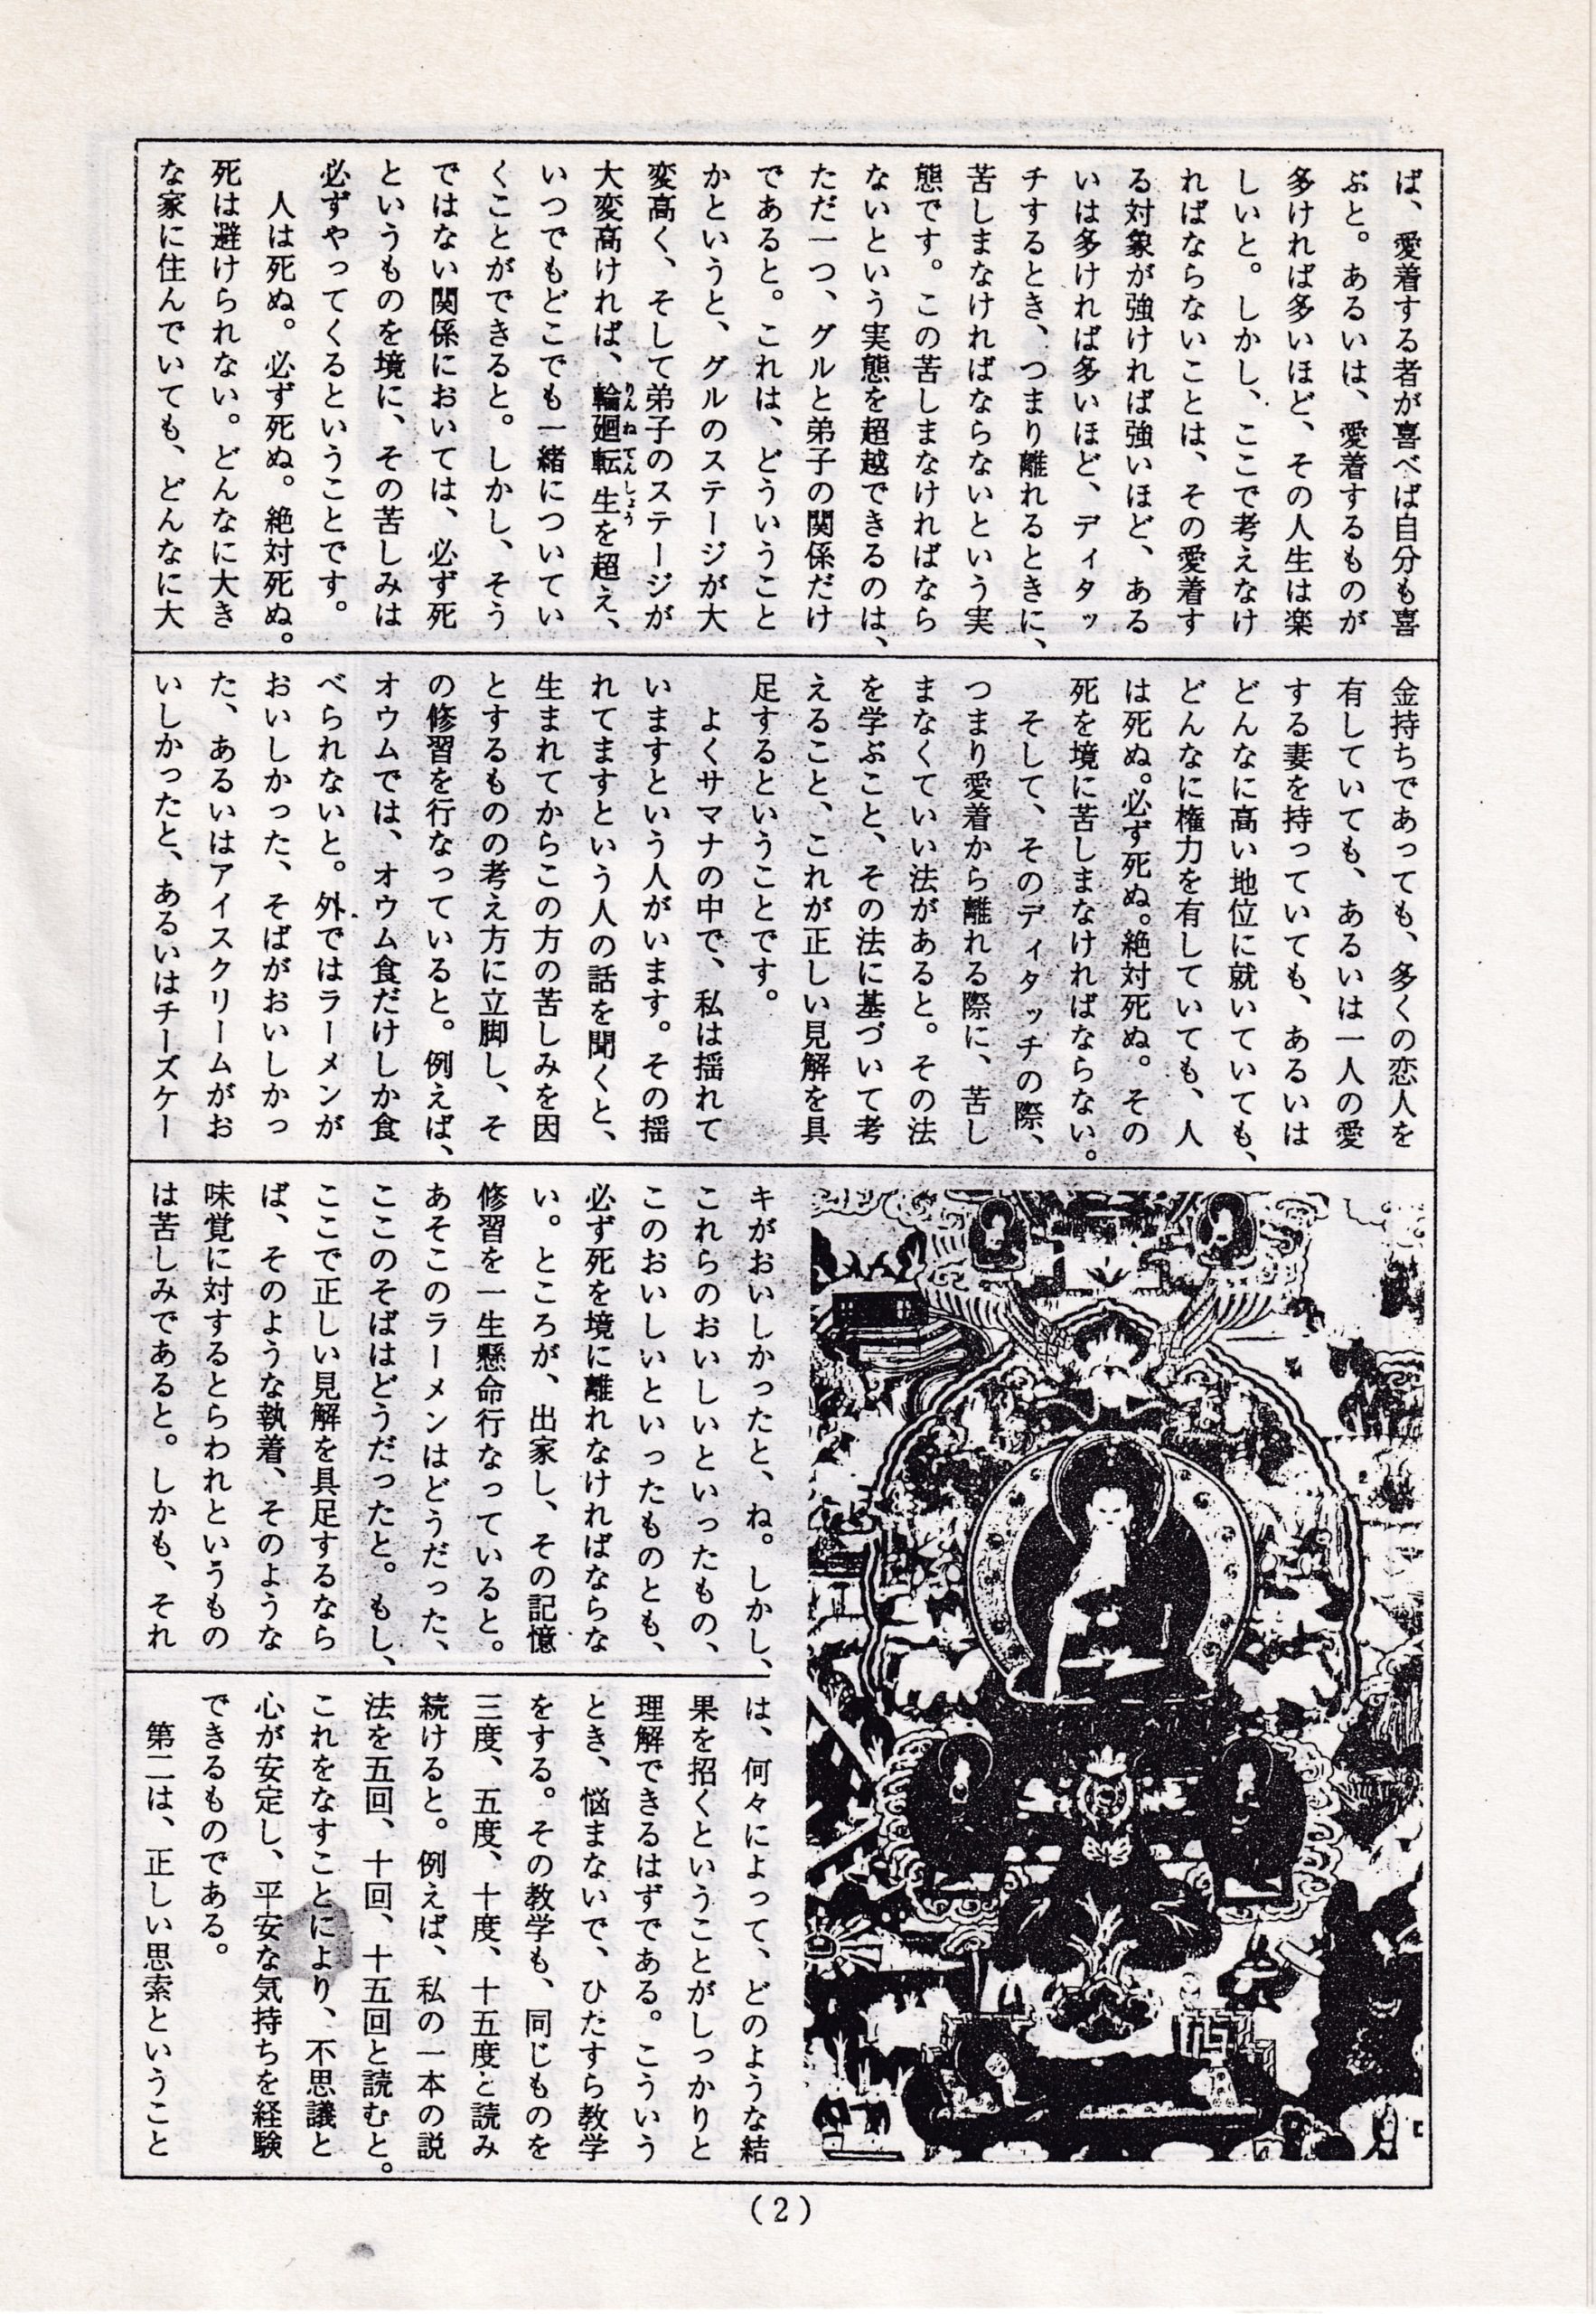 ば、愛着する者が喜べば自分も喜
ぶと。あるいは、愛着するものが
多ければ多いほど、その人生は楽
しいと。しかし、ここで考えなけ
ればならないことは、その愛着す
る対象が強ければ強いほど、ある
いは多ければ多いほど、ディタッ
チするとき、つまり離れるときに、
苦しまなければならないという実
態です。この苦しまなければなら
ないという実態を超越できるのは、
ただ一つ、グルと弟子の関係だけ
であると。これは、どういうこと
かというと、グルのステージが大
変高く、そして弟子のステージが
大変高ければ、輪廻転生を超え、
いつでもどこでも一緒についてい
くことができると。しかし、そう
ではない関係においては、必ず死
というものを境に、その苦しみは
必ずやってくるということです。
　人は死ぬ。必ず死ぬ。絶対死ぬ。
死は避けられない。どんなに大き
な家に住んでいても、どんなに大
金持ちであっても、多くの恋人を
有していても、あるいは一人の愛
する妻を持っていても、あるいは
どんなに高い地位に就いていても、
どんなに権力を有していても、人
は死ぬ。必ず死ぬ。絶対死ぬ。その
死を境に苦しまなければならない。
　そして、そのディタッチの際、
つまり愛着から離れる際に、苦し
まなくていい法があると。その法
を学ぶこと、その法に基づいて考
えること、これが正しい見解を具
足するということです。
　よくサマナの中で、私は揺れて
いますという人がいます。その揺
れてますという人の話を聞くと、
生まれてからこの方の苦しみを因
とするものの考え方に立脚し、そ
の修習を行なっていると。例えば、
オウムでは、オウム食だけしか食
べられないと。外ではラーメンが
おいしかった、そばがおいしかっ
た、あるいはアイスクリームがお
いしかったと、あるいはチーズケー
キがおいしかったと、ね。しかし、
これらのおいしいといったもの、
このおいしいといったものとも、
必ず死を境に離れなければならな
い。ところが、出家し、その記憶
修習を一生懸命行なっていると。
あそこのラーメンはどうだった、
ここのそばはどうだったと。もし、
ここで正しい見解を具足するなら
ば、そのような執着、そのような
味覚に対するとらわれというもの
は苦しみであると。しかも、それ
は、何々によって、どのような結
果を招くということがしっかりと
理解できるはずである。こういう
とき、悩まないで、ひたすら教学
をする。その教学も、同じものを
三度、五度、十度、十五度と読み
続けると。例えば、私の一本の説
法を五回、十回、十五回と読むと。
これをなすことにより、不思議と
心が安定し、平安な気持ちを経験
できるものである。
　第二は、正しい思索ということ
(2)